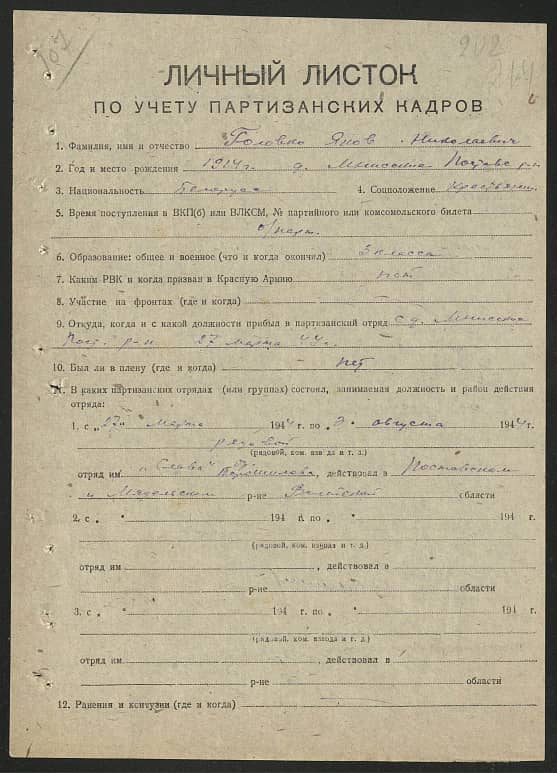 107
202
214
ЛИЧНЫЙ ЛИСТОК
ПО УЧЕТУ ПАРТИЗАНСКИХ КАДРОВ
1. Фамилия, имя и отчество Головко Яков Николаевич
2. Год и место рождения 1914 г. д. р-н
3. Национальность Белорус 4. Соцположение крестьянин
5. Время поступления в ВКП(б) или ВЛКСМ, № партийного или комсомольского билета
б/парт.
6. Образование: общее и военное (что и когда окончил) 3 класса
7. Каким РВК и когда призван в Красную Армию нет
8. Участие на фронтах (где и когда)
9. Откуда, когда и с какой должности прибыл в партизанский отряд с д.
Пост. р-н 27 марта 44 г.
10. Был ли в плену (где и когда) нет
11. В каких партизанских отрядах (или группах) состоял, занимаемая должность и район действия
отряда:
1. с „27" марта 1944 г. по августа 1944 г.
рядовой
(рядовой, ком. взвода и т. д.)
отряд им „Слава" Ворошилова, действовал в Поставском
и Мядельском р-не Вилейской области
2. с „ " 194 г. по „ " 194 г.
(рядовой, ком. взвода и т. д.)
отряд им , действовал в
р-не области
3. с „ " 194 г. по „ " 194 г.
(рядовой, ком. взвода и т. д.)
отряд им , действовал в
р-не области
12. Ранения и контузии (где и когда)